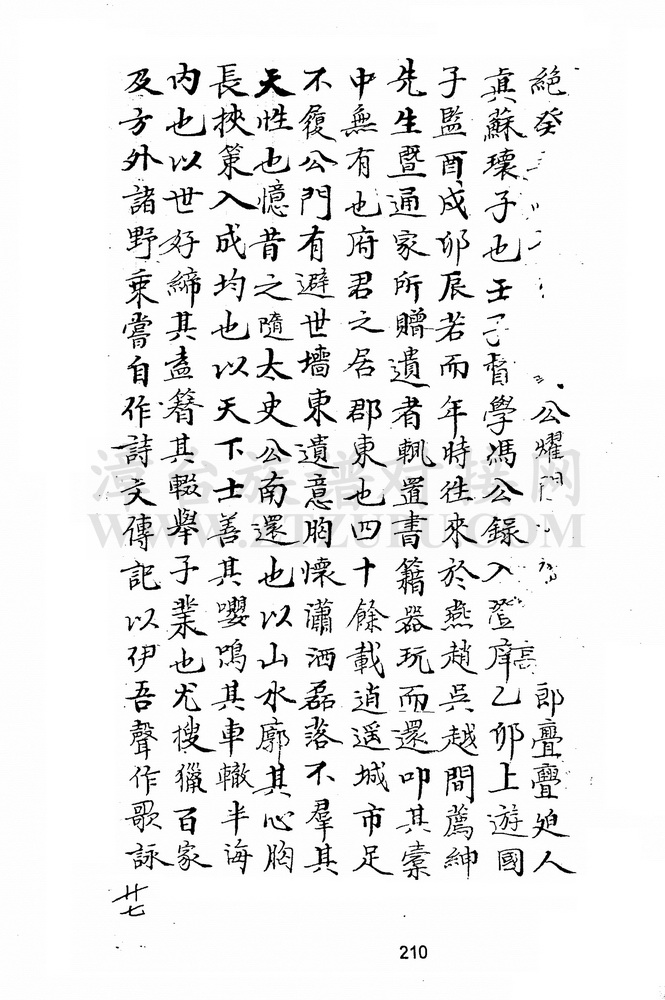 絕癸公耀郎亹亹迫人
真蘇瓌子也壬子督學馮公錄入澄庠乙卯上遊國
子監酉戌卯辰若而年時徃來於燕趙吳越間薦紳
先生暨通家所贈遺者輒置書籍器玩而還叩其橐
中無有也府君之居郡東也四十餘載逍遥城市足
不履公門有避世墻東遺意胸懷瀟洒磊落不羣其
天性也憶昔之隨太史公南還也以山水廓其心胸
長挾策入成均也以天下士善其嚶鳴其車轍半海
內也以世好締其盍簪其輟舉子業也尤搜獵百家
及方外諸野乘嘗自作詩文傳記以伊吾聲作歌詠
廿七
210
漳台族譜對接網
WWW.ZTZUPU.COM